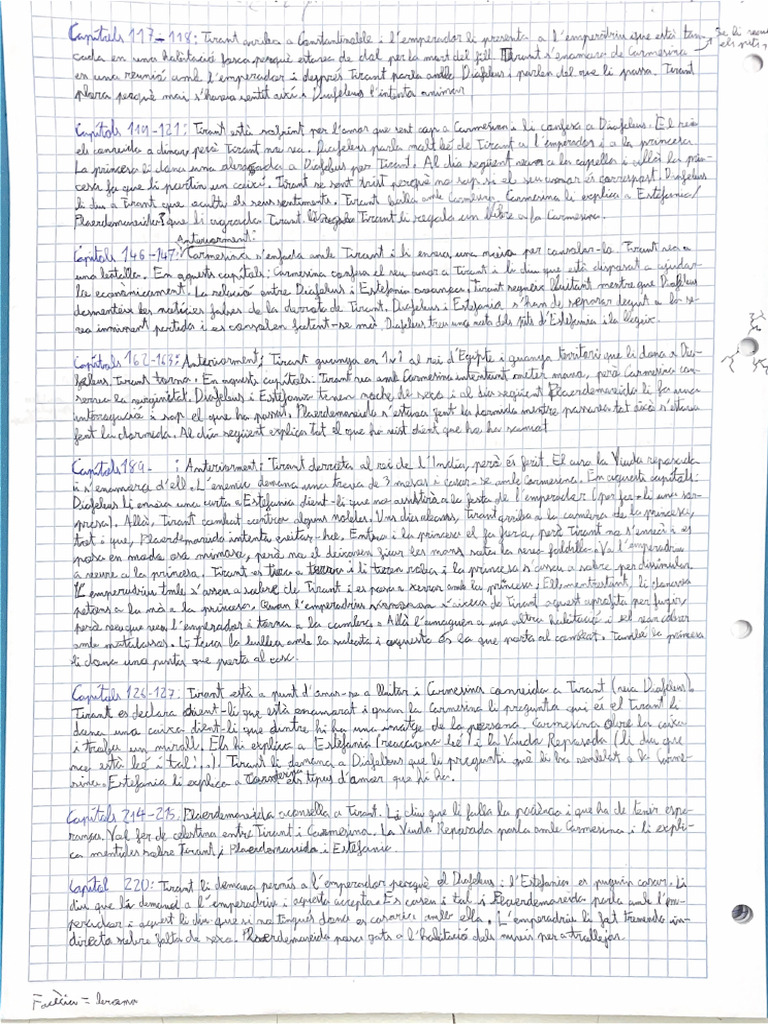 Capítols 117-118: Tirant arriba a Constantinoble i l'emperador li presenta a l'emperadriu que està tan-
cada en una habitació fosca perquè estan de dol per la mort del fill. Tirant s'enamora de Carmesina
en una reunió amb l'emperador i després Tirant parla amb Diafebus i parlen del que li passa. Tirant
plora perquè mai s'havia sentit així i Diafebus l'intenta animar
se li veu
els pits
Capítols 119-121: Tirant està sofrint per l'amor que sent cap a Carmesina i li confessa a Diafebus. El rei
els convida a dinar però Tirant no va. Diafebus parla malt bé de Tirant a l'emperador i a la princesa
La princesa li dona una abraçada a Diafebus per Tirant. Al dia següent van a les capelles i allà la prin-
cesa fa que li portin un coixí. Tirant se sent trist perquè no sap si el seu amor és correspost. Diafebus
li diu a Tirant que oculti els seus sentiments. Tirant balla amb Carmesina. Carmesina li explica a Estefania/
Plaerdemavida? que li agrada Tirant. Tirant li regala un llibre a la Carmesina.
Anteriorment:
Capítols 146-147: Carmesina s'enfada amb Tirant i li envia una per consolar-lo. Tirant va a
una batalla. En aquests capítols: Carmesina confessa el seu amor a Tirant i li diu que està disposat a ajudar-
lo econòmicament. La relació entre Diafebus i Estefania avança, Tirant segueix lluitant mentre que Diafebus
desmenteix les notícies falses de la derrota de Tirant. Diafebus i Estefania s'han de separar degut a la se-
va imminent partida i es consolen fotent-se mà. Diafebus treu una nota dels pits d'Estefania i la llegeix.
Capítols 162-163: Anteriorment: Tirant guanya en 1v1 al rei d'Egipte i guanya territori que li dona a Dia-
febus. Tirant torna. En aquests capítols: Tirant va amb Carmesina intentant meter mano, però Carmesina con-
serva la virginitat. Diafebus i Estefania tenen noche de sexo i al dia següent Plaerdemavida li fa una
interrogació i sap el que ha passat. Plaerdemavida s'estava fent la dormida mentre passava tot això s'estava
fent la dormida. Al dia següent explica tot el que ha vist dient que ho ha somiat
Capítols 189- : Anteriorment: Tirant derrota al rei de l'Índia, però és ferit. El cura la Viuda reposada
i s'enamora d'ell. L'enemic demana una treva de 3 mesos i casar-se amb Carmesina. En aquests capítols:
Diafebus li envia una carta a Estefania dient-li que no assistirà a la festa de l'emperador (per fer-li una sor-
presa). Allà, Tirant combat contra alguns nobles. Uns dies després, Tirant arriba a la cambra de la princesa,
tot i que, Plaerdemavida intenta evitar-ho. Entra i la princesa el fa fora, però Tirant no s'enrecà i es
posa en modo oso mimoso, però no el deixaven ficar les mans sota la seva faldilla. Va l'emperadriu
a veure a la princesa. Tirant es tira a terra i li tiren roba i la princesa s'asseu a sobre per dissimular.
L'emperadriu tmb s'asseu a sobre de Tirant i es posa a xerrar amb la princesa. Ell mentrestant, li donava
petons a la mà a la princesa. Quan l'emperadriu s'aixeca de Tirant aquest aprofita per fugir,
però veu que ve l'emperador i torna a la cambra. Allà l'amaguen a una altra habitació i el van cobrir
amb matalassos. Li toca la bullea amb la sabata i aquesta és la que porta al combat. També la princesa
li dona una pinta que porta al casc.
Capítols 126-127: Tirant està a punt d'anar-se a lluitar i Carmesina convida a Tirant (veia Diafebus).
Tirant es declara dient-li que està enamorat i quan la Carmesina li pregunta qui és el Tirant li
dona una caixa dient-li que dintre hi ha una imatge de la persona. Carmesina obre la caixa
i troba un mirall. Els hi explica a Estefania (reacciona bé) i la Viuda Reposada (li diu que
no està bé i tal...). Tirant li demana a Diafebus que li pregunti què li ha semblat a la Carme-
sina. Estefania li explica a Carmesina els tipus d'amor que hi ha.
Capítols 214-215: Plaerdemavida aconsella a Tirant. Li diu que li falla la paciència i que ha de tenir espe-
rança. Vol fer de celestina entre Tirant i Carmesina. La Viuda Reposada parla amb Carmesina i li expli-
ca mentides sobre Tirant, Plaerdemavida i Estefania.
Capítol 220: Tirant li demana permís a l'emperador perquè el Diafebus i l'Estefania es puguin casar. Li
diu que li demani a l'emperadriu i aquella accepta. Es casen i tal i Plaerdemavida parla amb l'em-
perador i aquest li diu que si no tingués dona es casaria amb ella. L'emperadriu li fot tremenda in-
directa sobre falta de sexo. Plaerdemavida posa gats a l'habitació dels nuvis per a trollejar.
Facècia = broma